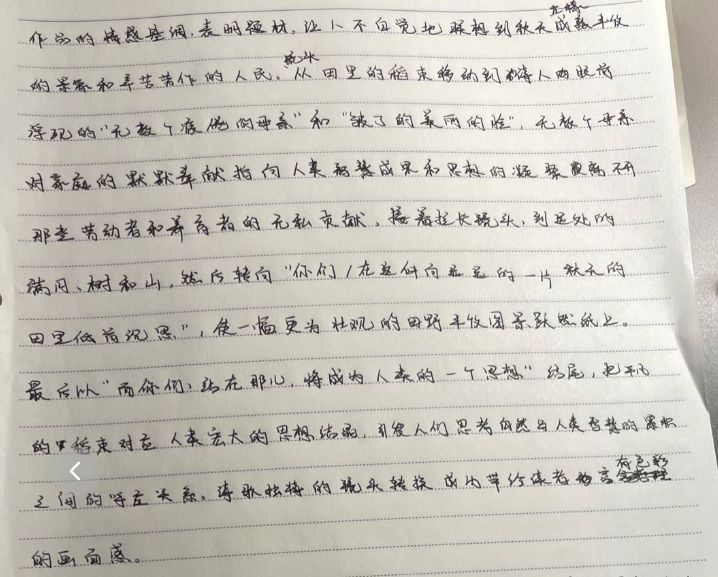 金灿
作品的情感基调,表明题材,让人不自觉地联想到秋天成熟丰收
镜头
的景象和辛苦劳作的人民,从田里的稻束移动到诗人的眼前
浮现的“无数个疲倦的母亲”和“皱了的美丽的脸”,无数个母亲
对家庭的默默奉献指向人类智慧成果和思想的凝聚离不开
那些劳动者和养育者的无私贡献,接着拉长镜头,到远处的
满月、树和山,然后转向“你们/在这伸向远远的一片秋天的
田里低首沉思”,使一幅更为壮观的田野丰收图景跃然纸上。
最后以“而你们,站在那儿,将成为人类的一个思想”结尾,把平凡
的稻束对应人类宏大的思想结晶,引发人们思考自然与人类智慧的累积
之间的存在关系。诗歌独特的镜头转换成为带给读者
有色彩
的画面感。